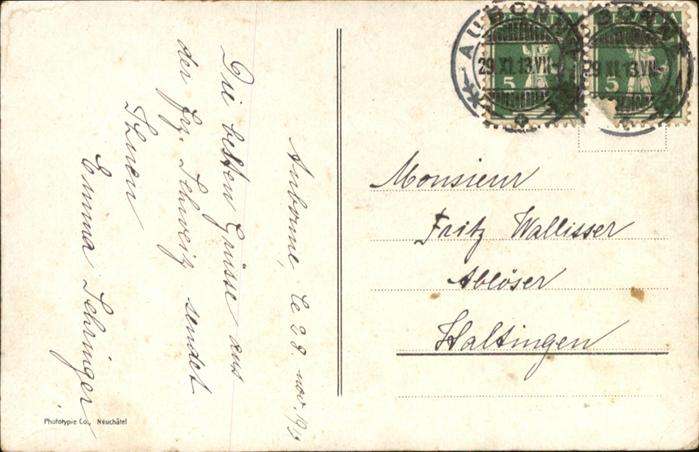 Aubonne, le 28 nov 13
Die besten Grüsse aus
der frz. Schweiz sendet
Ihnen
Emma Sehringer
Phototypie Co., Neuchâtel
AUBONNE
29.XI.13.VII
5
AUBONNE
29.XI.13.VII
5
Monsieur
Fritz Wallisser
Ablöser
Haltingen